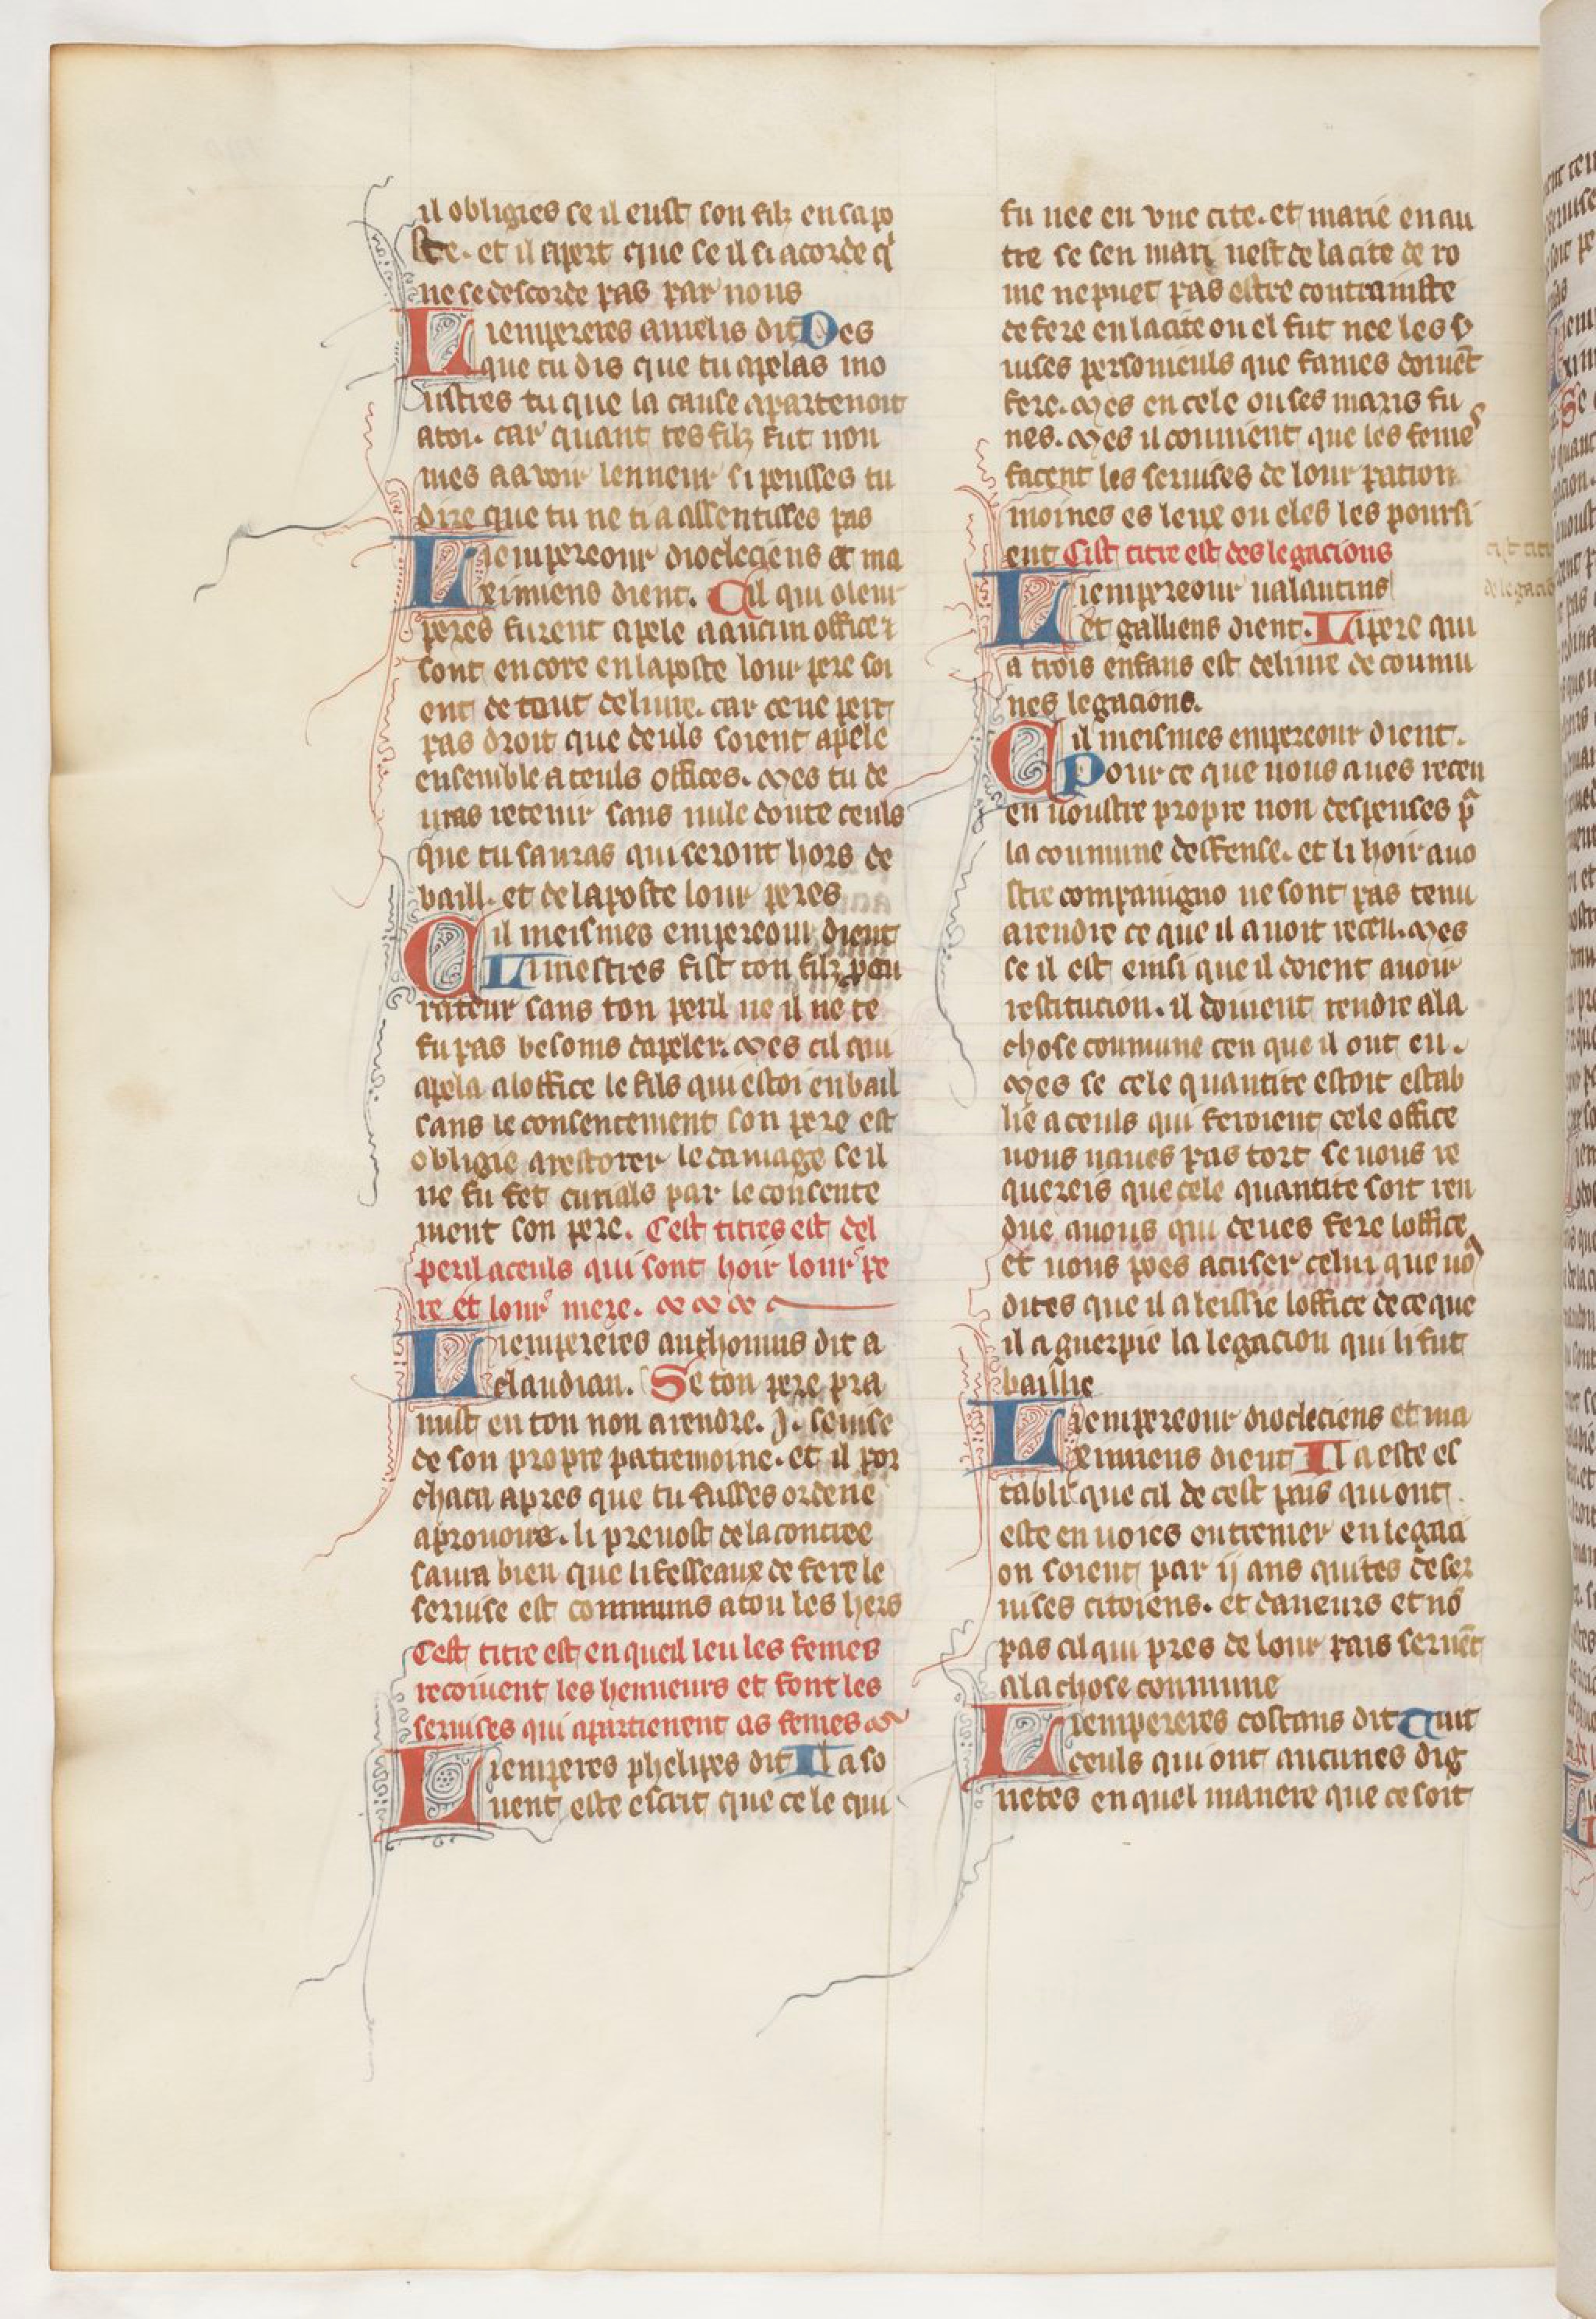 il obligies se il eust son filz en sa po
ste. et il apert que se il si acorde q̉
ne se descorde pas par nous
Li empereres aurelis dit Des
que tu dis que tu apelas mo
ustres tu que la cause apartenoit
a toi. car quant tes filz fut non
mes a avoir lenneur si peusses tu
dire que tu ne ti a assentisses pas
Li empereour diocleciens et ma
ximiens dient. Cil qui o leur
peres furent apele a aucun office ⁊
sont encore en la poste lour pere soi
ent de tout deliure. car ce ne pert
pas droit que deuls soient apele
ensemble a teuls offices. Mes tu de
uras retenir sans nule doute ceuls
que tu sauras qui seront hors de
baill. et de la poste lour peres
Cil meismes empereour dient
Li mestres fist ton filz pcu
rateur sans ton peril ne il ne te
fu pas besoins dapeler. Mes cil qui
apela a loffice le fils qui estoi en bail
sans le consentement son pere est
obligie a restorer le damage se il
ne fu fet curials par le consente
ment son pere. Cest titres est del
peril a ceuls qui sont hoir lour pe
re et lour mere.
Li empereres anthonius dit a
claudian. Se ton pere pra
mist en ton non a rendre .j. seruise
de son propre patremoine. et il por
chaca apres que tu fusses ordene
a prouoire. li preuost de la contree
saura bien que li fesseaux de fere le
seruise est communs a tou les hers
Cest titre est en queil leu les femes
recoiuent les henneurs et font les
seruises qui apartienent as femes
Li emperes phelipes dit Il a so
uent este escrit que ce le qui
fu nee en vne cite. et marie en au
tre se sen mari nest de la cite de ro
me ne puet pas estre contrainste
de fere en la cite ou el fut nee les s̾
uises personieuls que fames doiuēt
fere. Mes en cele ou ses maris fu
nes. Mes il conuient que les femes
facent les seruises de lour patiom
moines es leux ou eles les poursi
ent Cist titre est des legacions
Li empereour ualantins
et galliens dient. Li pere qui
a trois enfans est deliure de coumu
nes legacions.
Cil meismes empereour dient.
Pour ce que nous aues receu
en uoustre propre non despenses pͣ
la coumune deffense. et li hoir a uo
stre compaingno ne sont pas tenu
a rendre ce que il auoit receu. Mes
se il est einsi que il doient auoir
restitucion. il doiuent rendre a la
chose coumune cen que il ont eu.
Mes se cele quantite estoit estab
lie a ceuls qui feroient cele office
uous naues pas tort se uous re
quereis que cele quantite soit ren
due a uous qui deues fere loffice
et uous poes acuser celui que uo⁹
dites que il a leissie loffice de ce que
il a guerpie la legacion qui li fut
baillie
Li empereour diocleciens et ma
ximiens dient Il a este es
tabli que cil de cest pais qui ont
este en uoies outremer en legaci
on soient par ij ans quites de ser
uises citoiens. et daneurs et nō
pas cil qui pres de lour pais seruēt
a la chose commune
Li empereres costans dit Tuit
ceuls qui ont aucunes dig
netes en quel manere que ce soit